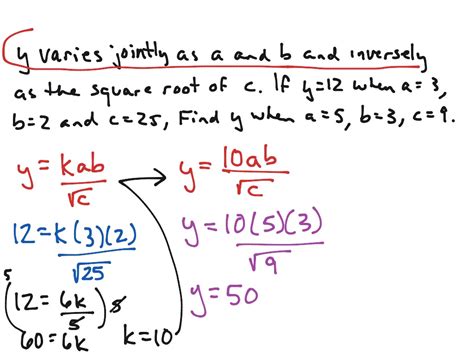 y varies jointly as a and b and inversely
as the square root of c. If y=12 when a=3,
b=2 and c=25, Find y when a=5, b=3, c=9.
y = kab/√c
12 = k(3)(2)/√25
5(12 = 6k/5)5
60 = 6k k=10
y = 10ab/√c
y = 10(5)(3)/√9
y = 50